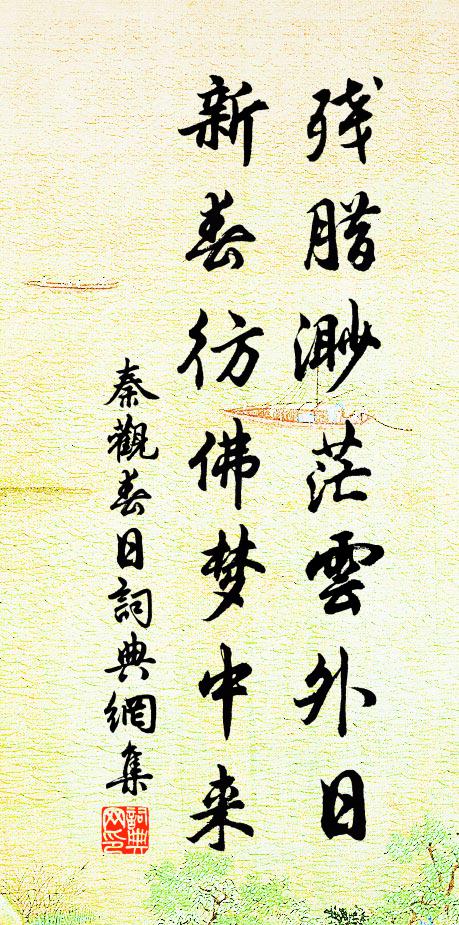 残腊渺茫雲外日
新春彷佛梦中来
秦觀春日詞典網集
詞典网印